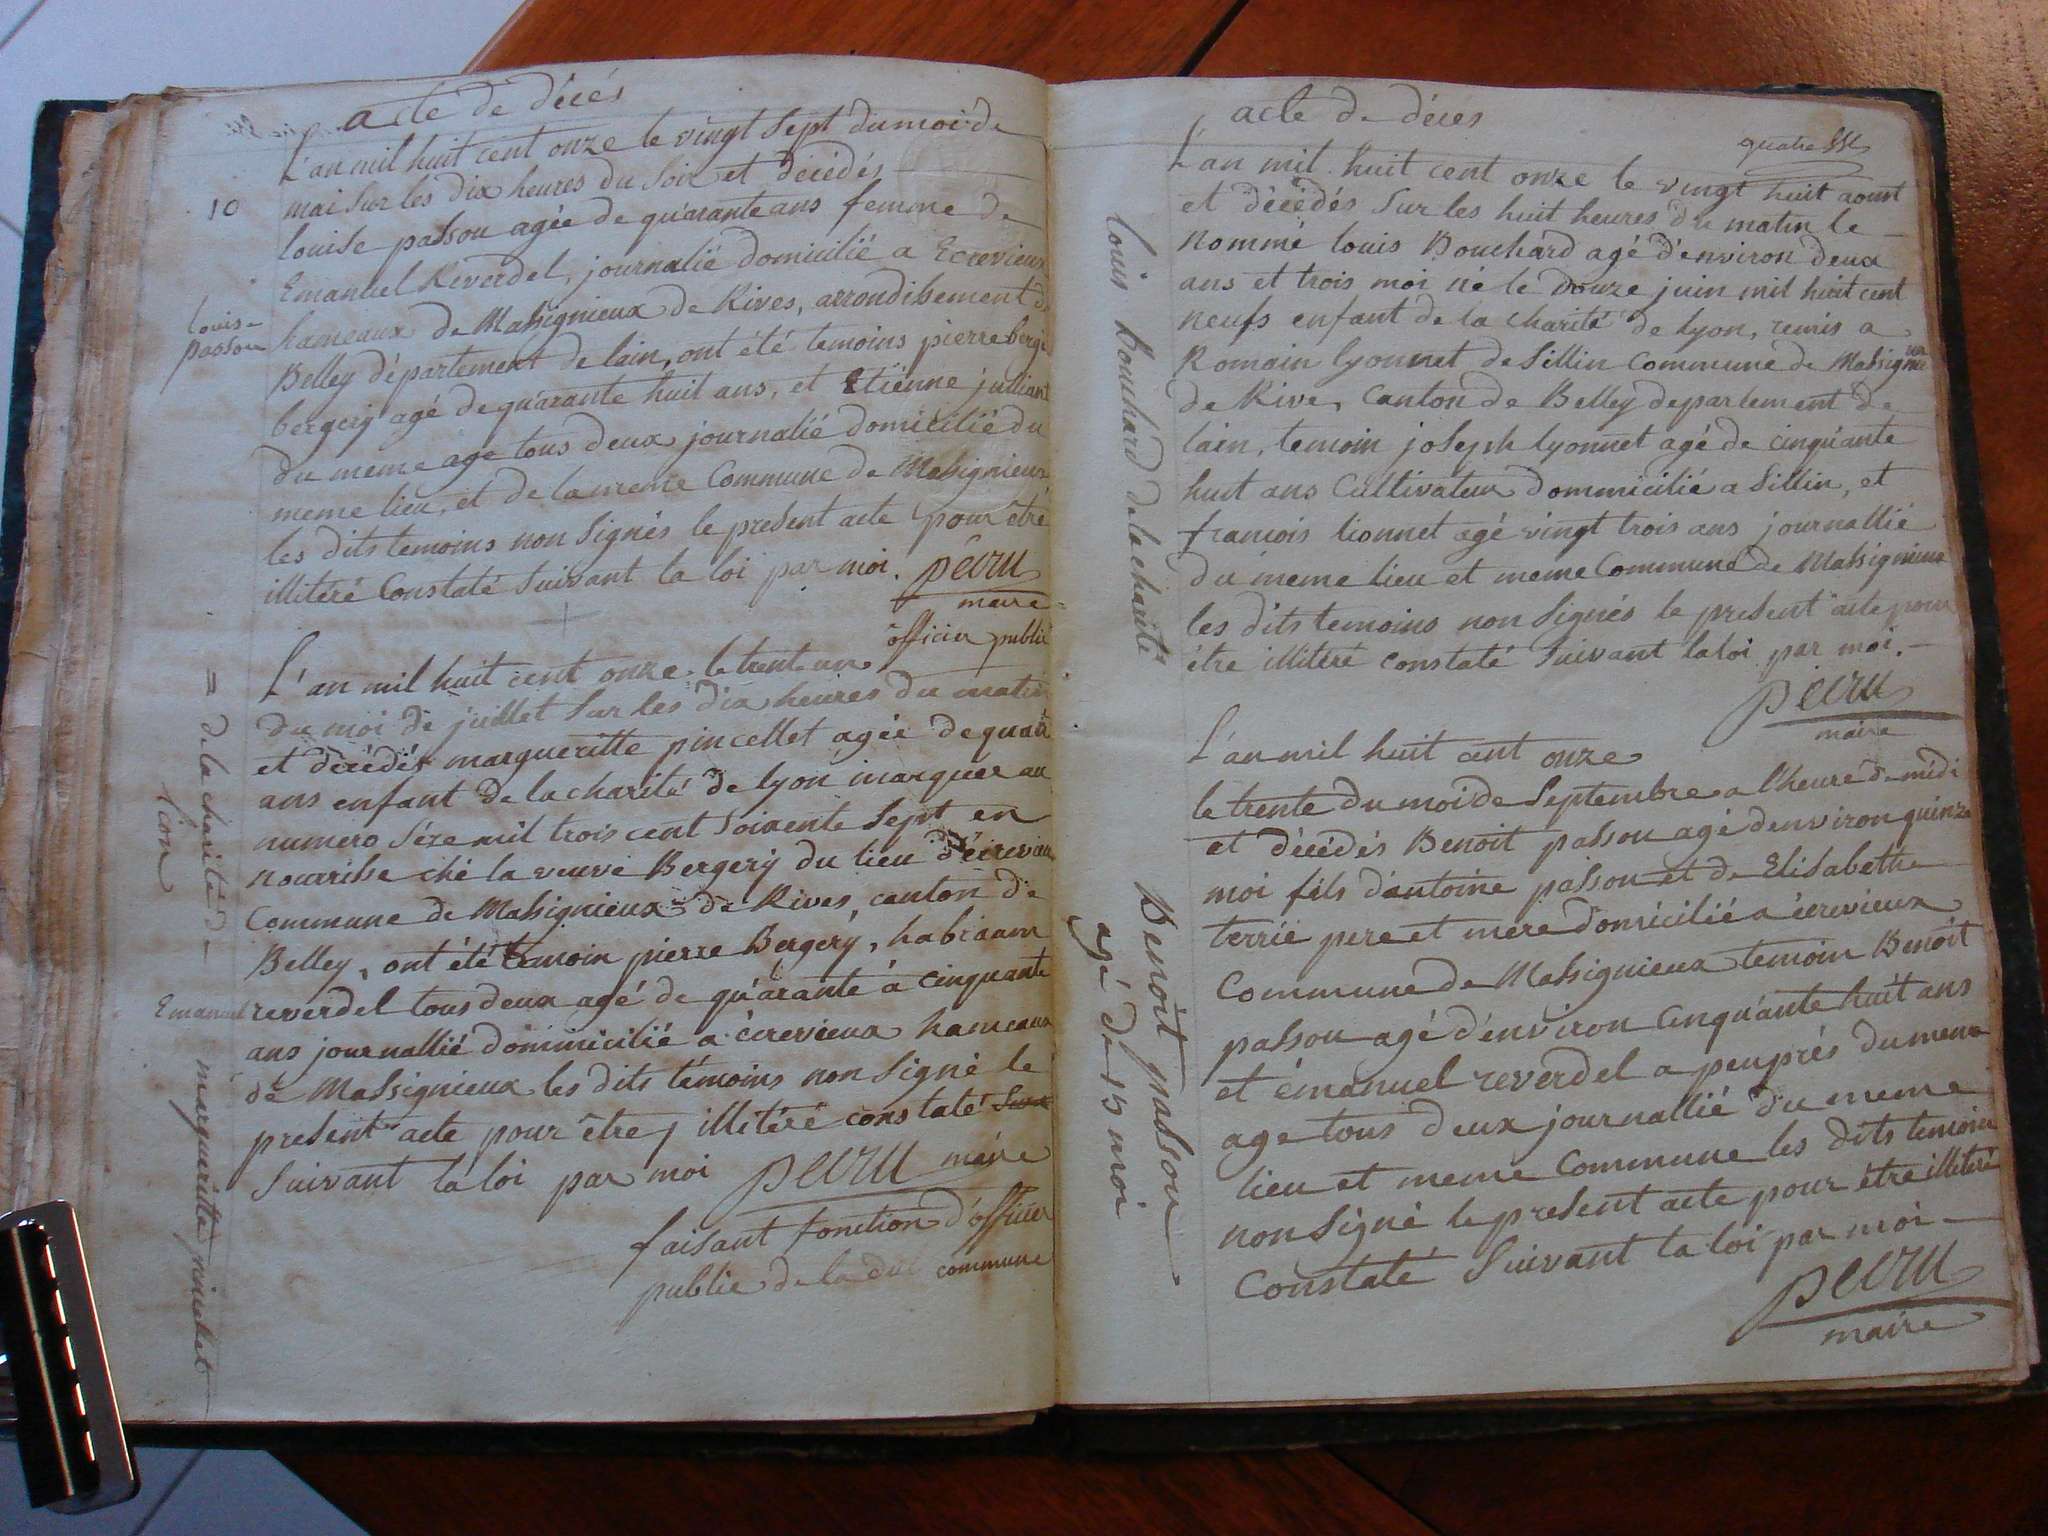 acte de décés
L'an mil huit cent onze le vingt sept du moi de
mai sur les dix heures du soir et décédés
10
louise passou agée de quarante ans femme de
Emanuel Reverdel, journalié domicilié a Ecrevieux
hameaux de Massignieux de Rives, arrondissement de
louise
passou
Belley département de lain, ont été temoins pierre bergé
bergery agé de quarante huit ans, et Etienne julliant
du meme age tous deux journalié domicilié du
meme lieu, et de la meme Commune de Massignieux
les dits temoins non signés le present acte pour être
illitéré Constaté suivant la loi par moi. pecru
maire
officier public
L'an mil huit cent onze le trente un
du moi de juillet sur les dix heures du matin
et décédés margueritte pincellet agée de quatre
ans enfant de la charité de lyon marquer au
numero séze mil trois cent soixente sept en
nourrisse ché la veuve Bergery du lieu d'écrevieux
Commune de Massignieux de Rives, canton de
Belley, ont été témoin pierre Bergery, habraam
Emanuel reverdel tous deux agé de quarante à cinquante
ans journallié domicilié a écrevieux hameaux
de Massignieux les dits témoins non signé le
present acte pour être illitéré constaté
suivant la loi par moi pecru maire
faisant fonction d'officier
public de la dite commune
= de la charité de
lion
margueritte pincellet
acte de décès
quatre
L'an mil huit cent onze le vingt huit aoust
et décédés sur les huit heures du matin le
nommé louis Bouchard agé d'environ deux
ans et trois moi né le douze juin mil huit cent
neufs enfant de la charité de lyon, remis a
Romain lyonnet de Sillin Commune de Massignieu
de Rive, Canton de Belley departement de
lain, temoin joseph lyonnet agé de cinquante
huit ans Cultivateur dommicilié a Sillin, et
francois lionnet agé vingt trois ans journallié
du meme lieu et meme Commune de Massignieux
les dits temoins non signés le present acte pour
être illitéré constaté suivant la loi par moi.
pecru
maire
louis bouchard de la charité
L'an mil huit cent onze
le trente du moi de septembre a l'heure de midi
et décédés Benoit passou agé denviron quinze
moi fils d'antoine passou et de Elisabeth
terrié pere et mère domicilié a écrevieux
Commune de Massignieux temoin Benoit
passou agé d'environ cinquante huit ans
et émanuel reverdel a peuprés du meme
age tous deux journallié du meme
lieu et meme Commune les dits temoin
non signé le present acte pour être illitéré
Constaté suivant la loi par moi
pecru
maire
Benoit passou
agé de 15 moi